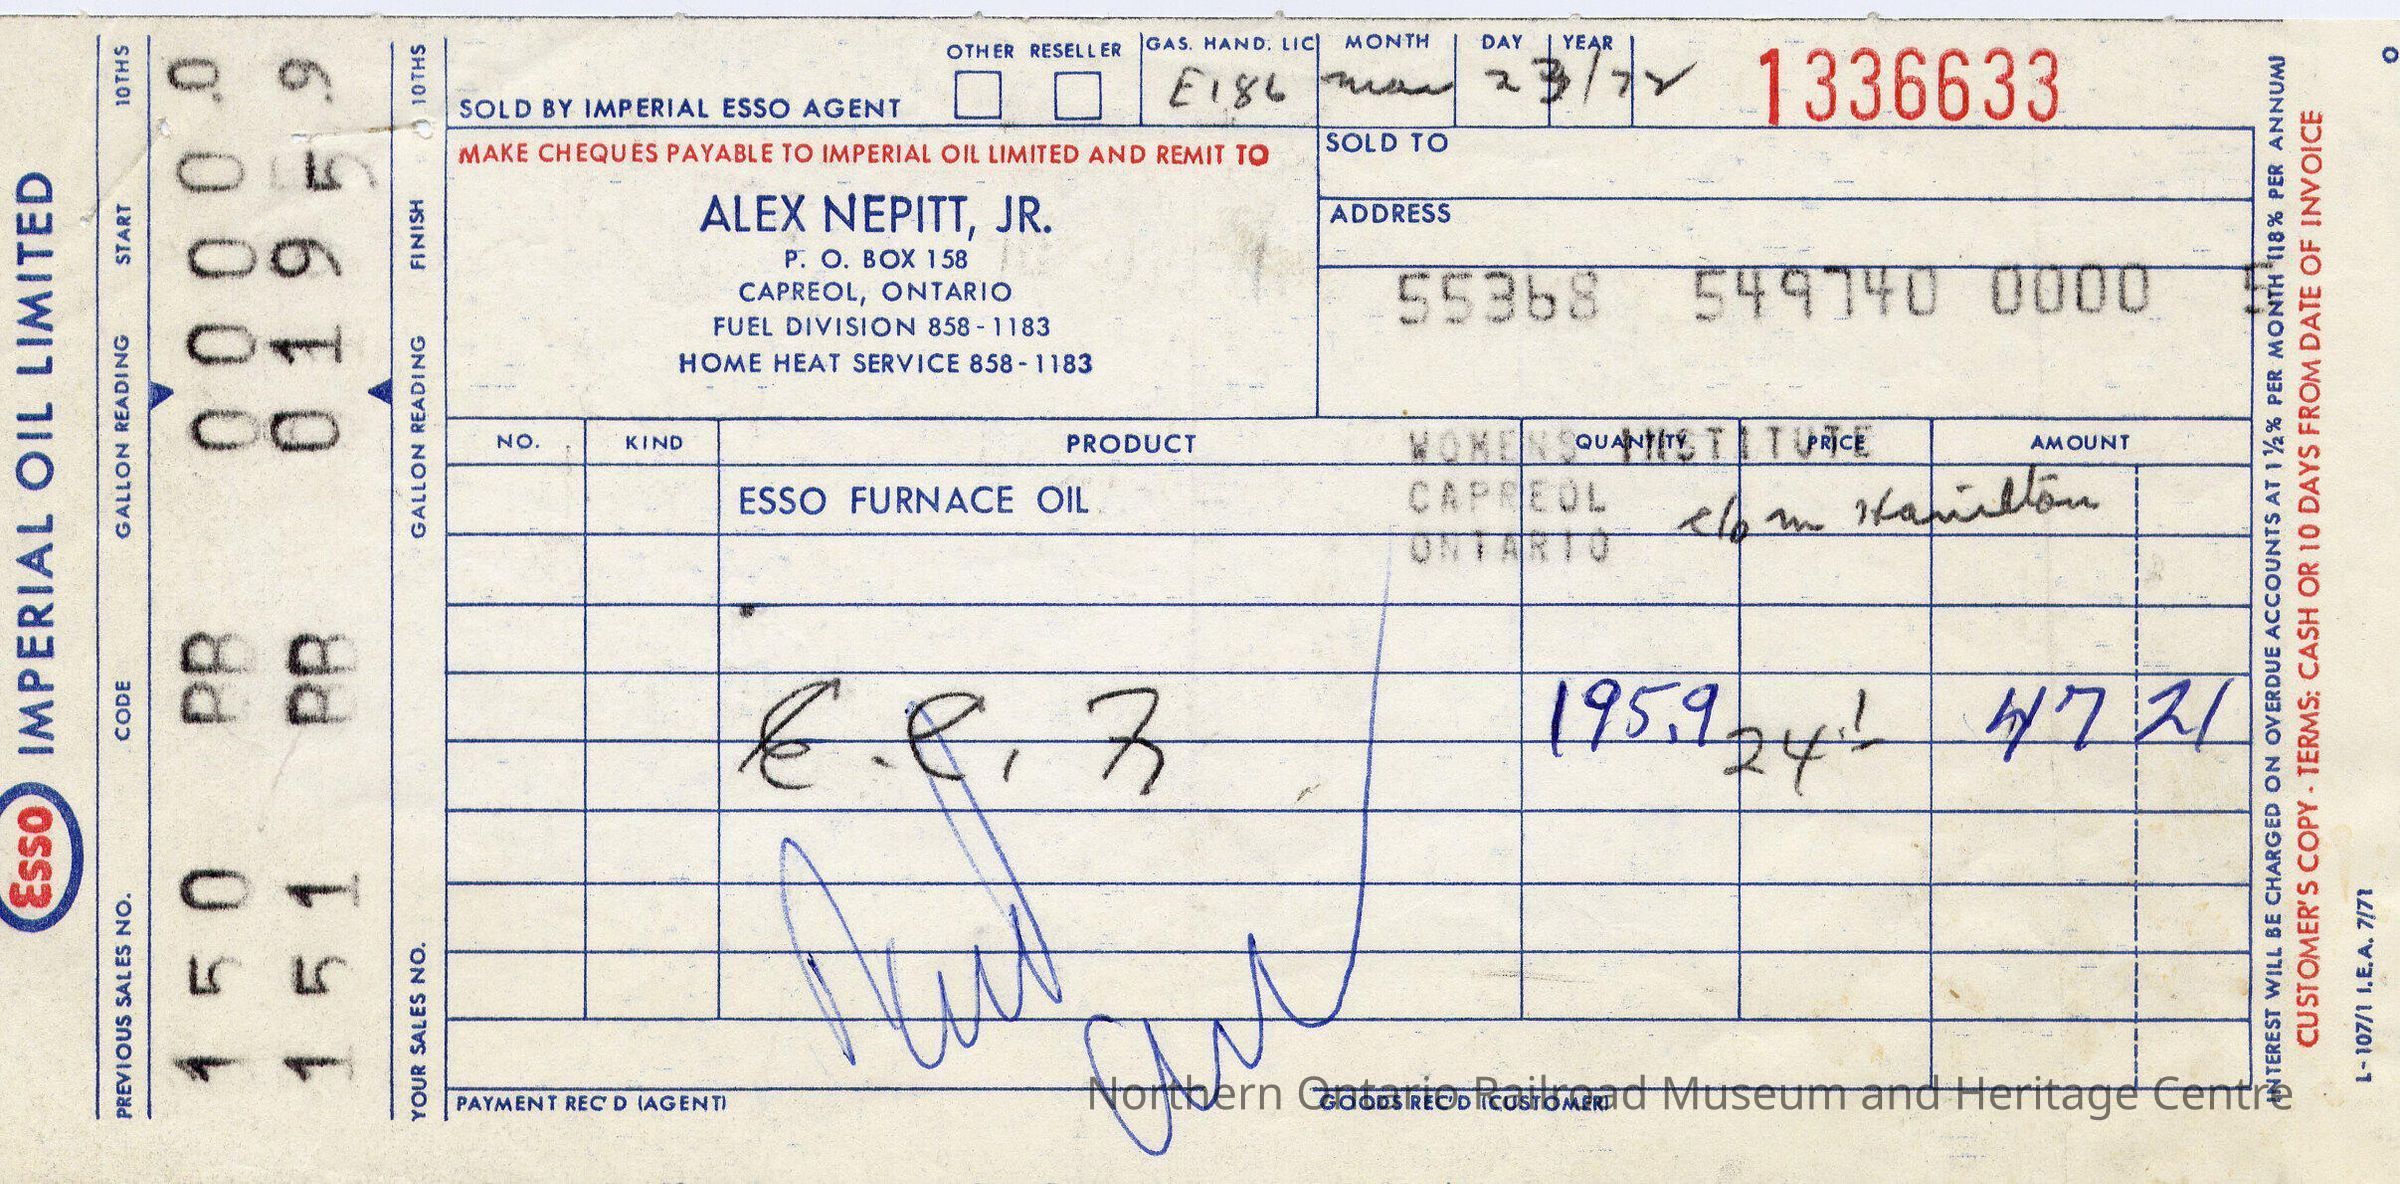 IMPERIAL OIL LIMITED
ESSO
10THS
START
GALLON READING
CODE
PREVIOUS SALES NO.
150 PR 0000.0
151 PR 0195.9
10THS
FINISH
GALLON READING
YOUR SALES NO.
OTHER RESELLER
SOLD BY IMPERIAL ESSO AGENT
GAS. HAND. LIC
E186
MONTH DAY YEAR
mar 23/72
1336633
MAKE CHEQUES PAYABLE TO IMPERIAL OIL LIMITED AND REMIT TO
ALEX NEPITT, JR.
P. O. BOX 158
CAPREOL, ONTARIO
FUEL DIVISION 858-1183
HOME HEAT SERVICE 858-1183
SOLD TO
ADDRESS
55368 549740 0000 5
NO. KIND PRODUCT QUANTITY PRICE AMOUNT
WOMENS INSTITUTE
CAPREOL
ONTARIO
c/o m Hamilton
ESSO FURNACE OIL
195.9 24.1 47 21
PAYMENT REC'D (AGENT)
GOODS REC'D (CUSTOMER)
INTEREST WILL BE CHARGED ON OVERDUE ACCOUNTS AT 1½% PER MONTH (18% PER ANNUM)
CUSTOMER'S COPY - TERMS: CASH OR 10 DAYS FROM DATE OF INVOICE
L-107/1 I.E.A. 7/71
Northern Ontario Railroad Museum and Heritage Centre